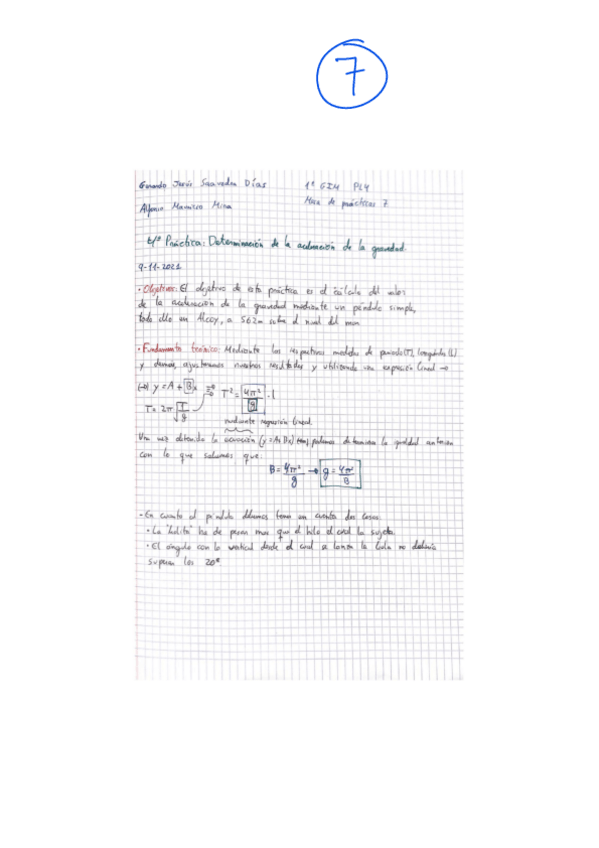 7
Gerardo Jesús Saavedra Días 1º GIM PL4
Alfonso Mira Mesa de prácticas 7
4ª Práctica: Determinación de la aceleración de la gravedad.
9-11-2021
· Objetivos: El objetivo de esta práctica es el cálculo del valor
de la aceleración de la gravedad mediante un péndulo simple,
todo ello en Alcoy, a 562m sobre el nivel del mar
· Fundamento teórico: Mediante las respectivas medidas de periodo(T), longitudes(L)
y demás, ajustaremos nuestros resultados y utilizando una expresión lineal →
(→) y = A + Bx ⇒ T² = 4π²/g · l
T = 2π √(l/g)
mediante regresión lineal.
Una vez obtenida la ecuación (y = A + Bx) podemos determinar la gravedad
con lo que sabemos que:
B = 4π²/g → g = 4π²/B
· En cuanto al péndulo debemos tener en cuenta dos cosas:
· La "bolita" ha de pesar más que el hilo el cual la sujeta.
· El ángulo con la vertical desde el cual se lanza la bola no debería
superar los 20º